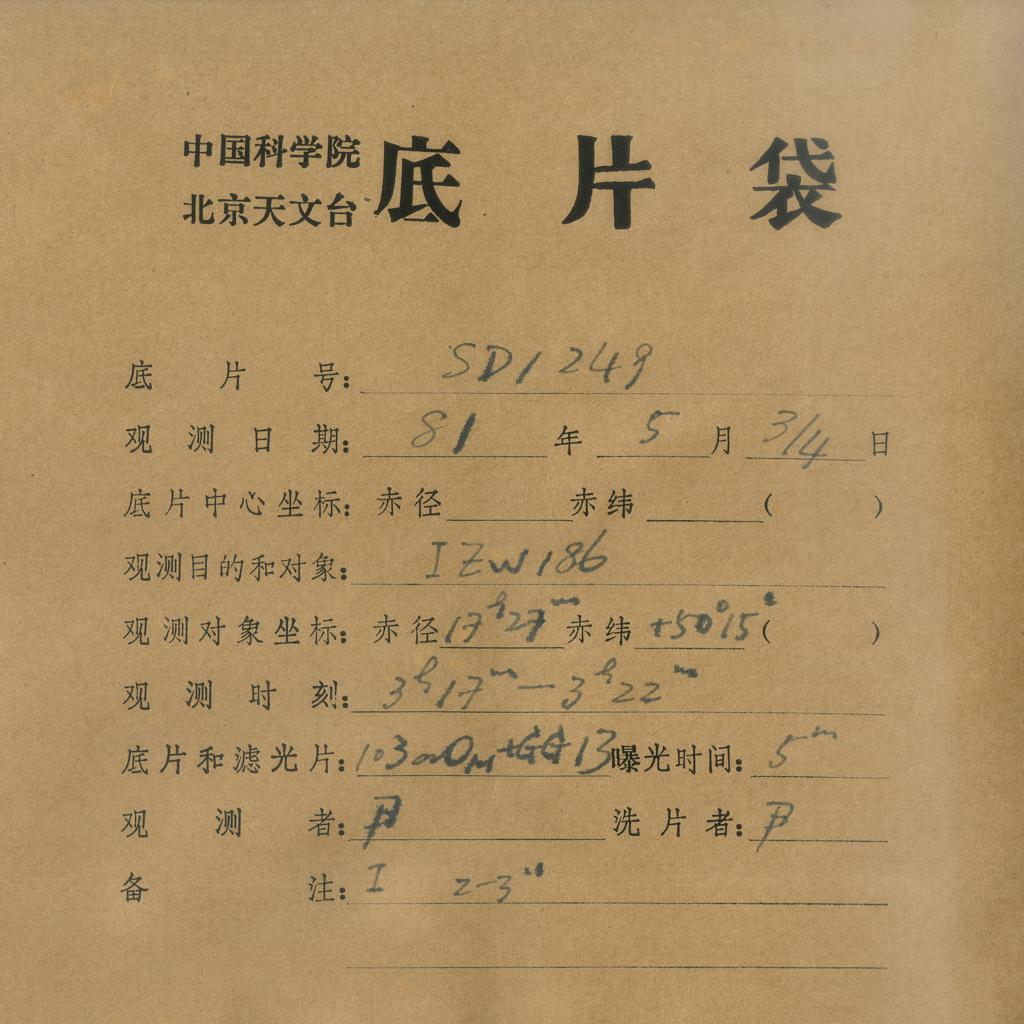 中国科学院
北京天文台
底片袋
底片号: SD1249
观测日期: 81 年 5 月 3/4 日
底片中心坐标: 赤径 赤纬 ( )
观测目的和对象: I ZW 186
观测对象坐标: 赤径 17h27m 赤纬 +50°15' ( )
观测时刻: 3h17m—3h22m
底片和滤光片: 103aO + GG13 曝光时间: 5m
观测者: 洗片者:
备注: I 2-3"